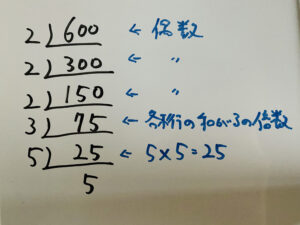 2 600 ← 偶数
2 300 ← 〃
2 150 ← 〃
3 75 ← 各桁の和が3の倍数
5 25 ← 5×5=25
5